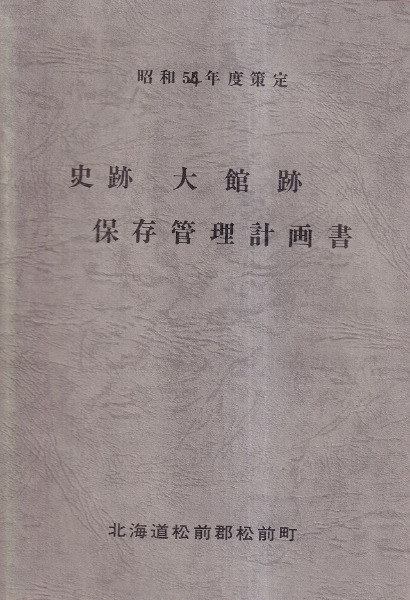 昭和54年度策定
史跡 大館跡
保存管理計画書
北海道松前郡松前町